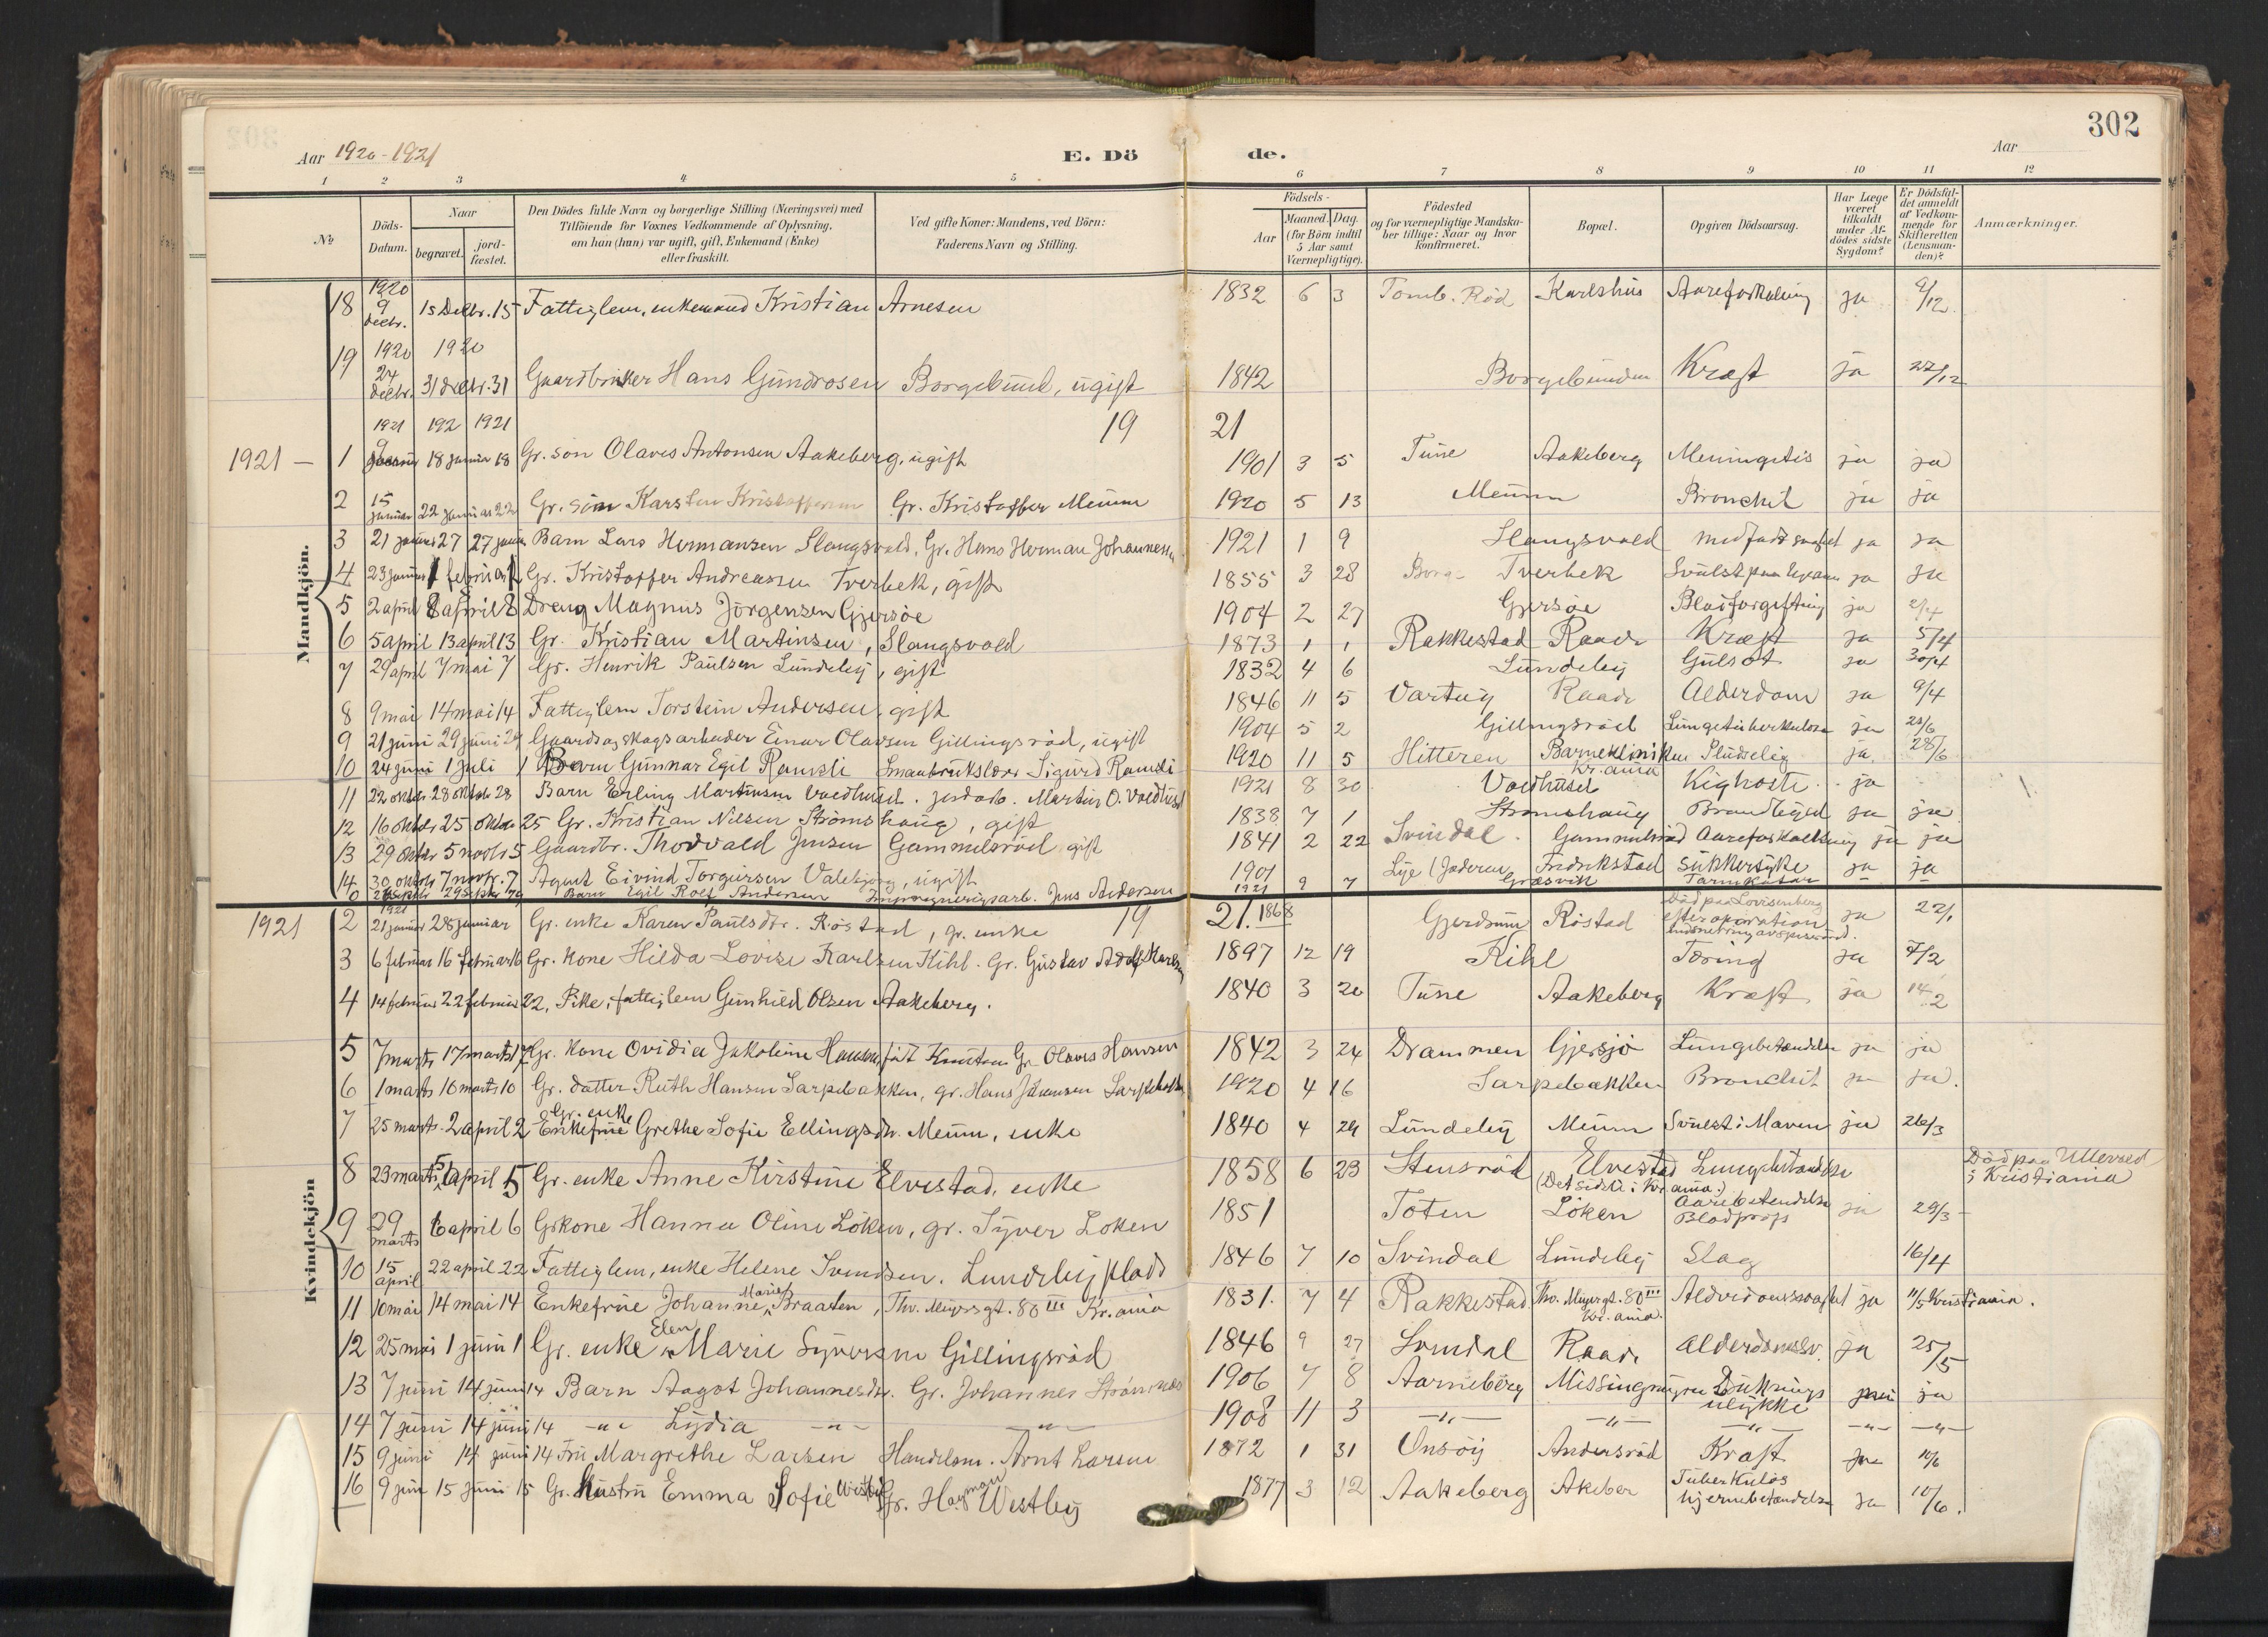 302
Aar 1920-1921 E. Dö de. Aar
1 2 3 4 5 6 7 8 9 10 11 12
№ Döds-Datum. Naar begravet. jord-fæstet. Den Dödes fulde Navn og borgerlige Stilling (Næringsvei) med Tilföiende for Voxnes Vedkommende af Oplysning, om han (hun) var ugift, gift, Enkemand (Enke) eller fraskilt. Ved gifte Koner: Mandens, ved Börn: Faderens Navn og Stilling. Födsels- Aar Maaned. Dag. (for Börn indtil 5 Aar samt Værnepligtige). Födested og for værnepligtige Mandskaber tillige: Naar og hvor konfirmeret. Bopæl. Opgiven Dödsaarsag. Har Læge været tilkaldt under Afdödes sidste Sygdom? Er Dödsfaldet anmeldt af Vedkommende for Skifteretten (Lensmanden)? Anmærkninger.
Mandkjön.
18 1920 9 decbr. 15 Decbr. 15 Fattiglem, enkemand Kristian Arnesen 1832 6 3 Tomb. Röd Karlshus Aareforkalkning ja 9/12
19 1920 24 decbr. 1920 31 decbr. 31 Gaardbruker Hans Gundrosen Borgebund, ugift 1842 Borgebunden Kræft ja 27/12
1921 192 1921 19 21
1921 — 1 9 januar 18 januar 18 Gr. sön Olaves Antonsen Aakeberg, ugift 1901 3 5 Tune Aakeberg Meningitis ja ja
2 15 januar 22 januar 22 Gr. sön Karsten Kristoffersen Gr. Kristoffer Meum 1920 5 13 Meum Bronchit ja ja
3 21 januar 27 27 januar Barn Lars Hermansen Slangsvold, Gr. Hans Herman Johannesen 1921 1 9 Slangsvold medfödt svaghet ja ja
4 23 januar 1 februar 1 Gr. Kristoffer Andreassen Tverbek, gift 1855 3 28 Borge Tverbek Svulst paa ja ja
5 2 april 8 april 8 Dreng Magnus Jörgensen Gjersöe 1904 2 27 Gjersöe Blodforgiftning ja 2/4
6 5 april 13 april 13 Gr. Kristian Martinsen, Slangsvold 1873 1 1 Rakkestad Raade Kræft ja 5/4
7 29 april 7 mai 7 Gr. Henrik Paulsen Lundeby, gift 1832 4 6 Lundeby Gulsot ja 30/4
8 9 mai 14 mai 14 Fattiglem Torstein Andersen, gift 1846 11 5 Varteig Raade Alderdom ja 9/4
9 21 juni 29 juni 29 Gaards og skogsarbeider Einar Olavsen Gillingsröd, ugift 1904 5 2 Gillingsröd Lungetuberkulose ja 22/6
10 24 juni 1 juli 1 Barn Gunnar Egil Ramsli Smaabrukslærer Sigurd Ramsli 1920 11 5 Hitteren Barneklinikken Kr.ania Pludselig ja 28/6
11 22 oktbr 28 oktbr 28 Barn Erling Martinsen Voldhuset. jordarb. Martin O. Voldhuset 1921 8 30 Voldhuset Kighoste ja
12 16 oktbr 25 oktbr 25 Gr. Kristian Nilsen Strömshaug, gift 1838 7 1 Strömshaug Brandbyld ja ja
13 29 oktbr 5 novbr 5 Gaardbr. Thorvald Jensen Gammelsröd gift 1841 2 22 Svindal Gammelsröd Aareforkalkning ja ja
14 30 oktbr 7 novbr. 7 Agent Eivind Torgersen Valebjörg, ugift 1901 Lye (Jæderen) Fredrikstad Sukkersyke ja ja
0 29 septbr 29 Barn Egil Rolf Andersen Impregneringsarb. Jens Andersen 1921 9 7 Græsvik Tarmkatar — —
Kvindekjön
1921 2 1921 21 januar 28 januar Gr. enke Karen Paulsdtr. Röstad, gr. enke 19 21. 1868 Gjerdrum Röstad Död paa Lovisenberg efter operation ja 22/1
3 6 februar 16 februar 16 Gr. kone Hilda Lovise Karlsen Kihl. Gr. Gustav Adolf Karlsen 1897 12 19 Kihl Tæring ja 7/2
4 14 februar 22 februar 22, Pike, fattiglem Gunhild Olsen Aakeberg. 1840 3 20 Tune Aakeberg Kræft ja 14/2
5 7 marts 17 marts 17 Gr. kone Ovidia Jakobine Hansen, födt Knutsen Gr. Olaves Hansen 1842 3 24 Drammen Gjersjö Lungebetændelse ja ja
6 1 marts 10 marts 10 Gr. datter Ruth Hansen Sarpebakken, gr. Hans Johansen Sarpebakken 1920 4 16 Sarpebakken Bronchit ja ja.
7 25 marts 2 april 2 Gr. enke Enkefrue Grethe Sofie Ellingsdtr. Meum, enke 1840 4 29 Lundeby Meum Svulst i Maven ja 26/3
8 23 marts 5 april 5 Gr. enke Anne Kirstine Elvestad, enke 1858 6 23 Stensröd Elvestad (Det sidste i Kr.ania.) Lungebetændelse Död paa Ullevold i Kristiania
9 29 marts 6 april 6 Grkone Hanna Oline Löken, gr. Syver Löken 1851 Toten Löken Aarebetændelse Blodprop ja 29/3
10 15 april 22 april 22 Fattiglem, enke Helene Svendsen. Lundeby plads 1846 7 10 Svindal Lundeby Slag 16/4
11 10 mai 14 mai 14 Enkefrue Johanne Marie Braaten, Thv. Meyersgt. 80 III Kr.ania 1831. 7 4 Rakkestad Thv. Meyergt. 80 III Kr.ania. Alderdomssvaghet ja 11/5 Kristiania.
12 25 mai 1 juni 1 Gr. enke Elen Marie Syversen Gillingsröd 1846 9 27 Svindal Raade Alderdomssv. ja 25/5
13 7 juni 14 juni 14 Barn Aagot Johannesdtr. Gr. Johannes Strömnes 1906 7 8 Aarneberg Missingmyren Drukningsulykke nei ja
14 7 juni 14 juni 14 -"- Lydia -"- -"- 1908 11 3 -"- -"- -"- -"- -"-
15 9 juni 14 juni 14 Fru Margrethe Larsen Handelsm. Arnt Larsen 1872 1 31 Onsöy Andersröd Kræft ja 10/6
16 9 juni 15 juni 15 Gr. Hustru Emma Sofie Westby Gr. Herman Westby 1877 3 12 Aakeberg Akeber Tuberkuløs hjernebetændelse ja 10/6.